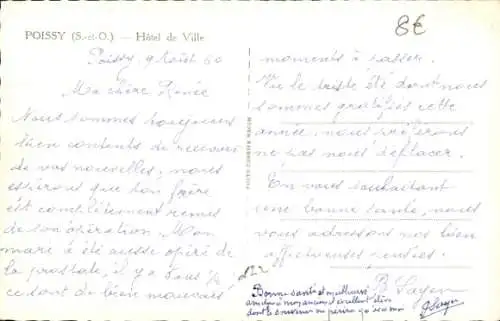 POISSY (S.-et-O.) — Hôtel de Ville
8€
Poissy, 9 Août 60
Ma chère Renée
Nous sommes toujours
bien contents de recevoir
de vos nouvelles, nous
espérons que ton frère
est complètement remis
de son opération. Mon
mari a été aussi opéré de
la prostate, il y a 5 ans 1/2
ce sont de bien mauvais
moments à passer.
Vu le triste été dont nous
sommes gratifiés cette
année, nous préférons
ne pas nous déplacer.
En vous souhaitant
une bonne santé, nous
vous adressons nos bien
affectueuses pensées.
Bonne santé et meilleures